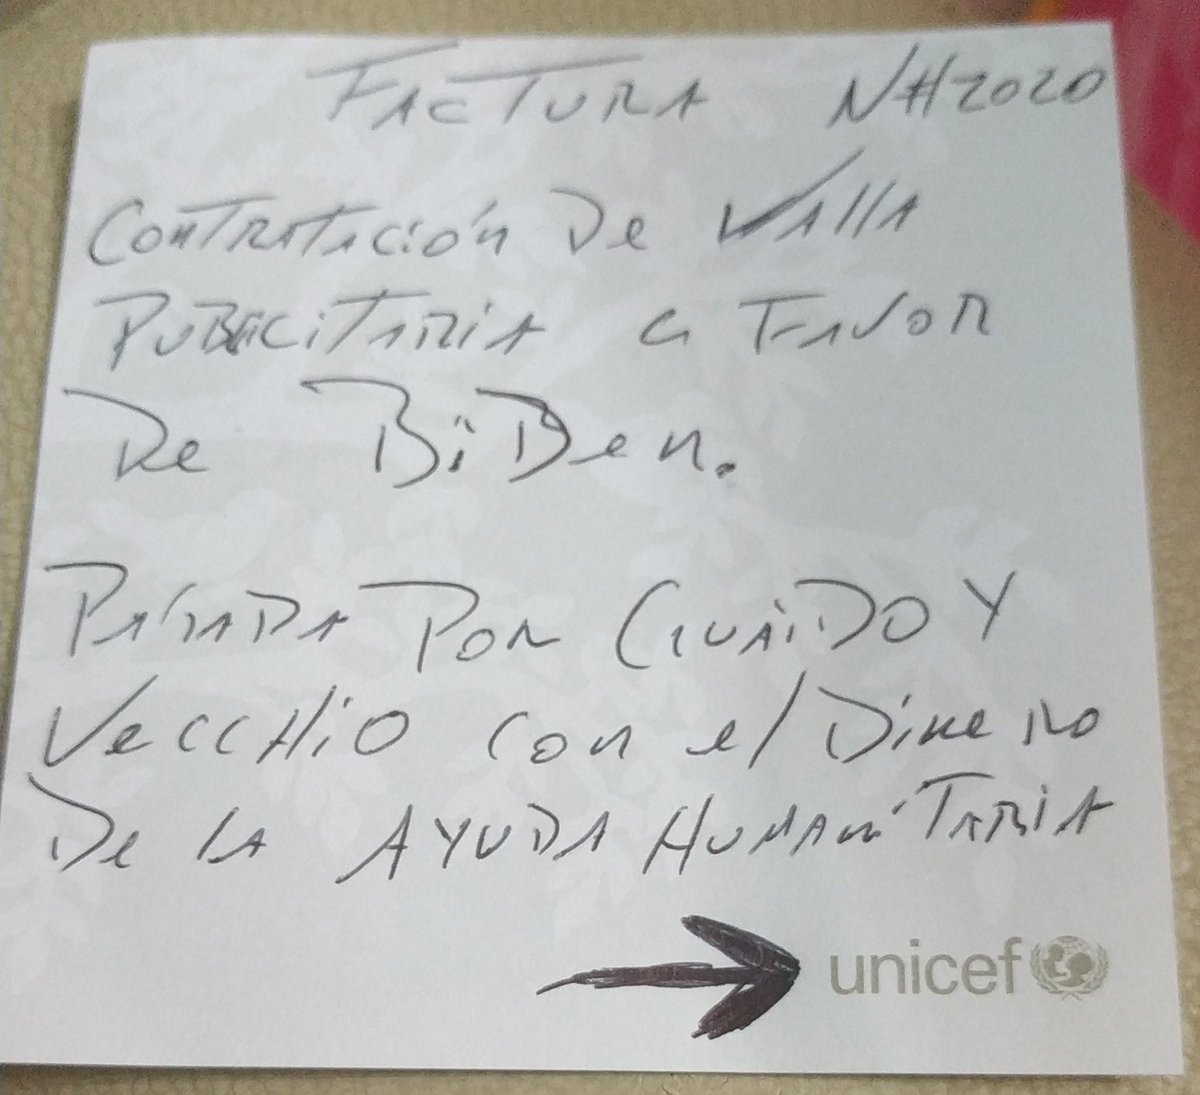 FACTURA N#2020
CONTRATACIÓN De VAllA
PUBliCiTARIA a FAVOR
De BiDen.
PAGADA POR GUAIDO Y
VeCCHiO con el Dinero
De lA AYUDA HUMANiTARIA
unicef